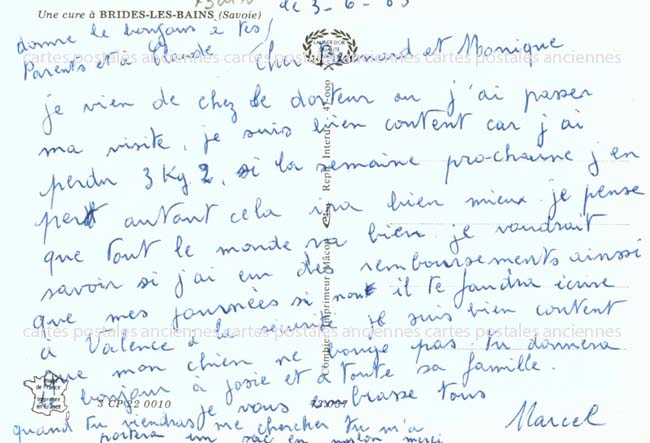 Une cure à BRIDES-LES-BAINS (Savoie)
de 3-6-
donne le bonjour a tes
Parents et a Claude
Cher Bernard et Monique
je vien de chez le docteur ou j'ai passer
ma visite, je suis bien content car j'ai
perdu 3 Kg 2, si la semaine prochaine j'en
perd autant cela ira bien mieux. je pense
que tout le monde va bien. je voudrait
savoir si j'ai eu des remboursements ainssi
que mes journées si non il te faudra écrire
à Valence à la sécurité. je suis bien content
que mon chien ne bouge pas. tu donnera
bonjour à Josie et a toute sa famille.
je vous brasse tous
Marcel
quand tu viendras me chercher tu m'a
portera un sac en merci
cartes postales anciennes cartes postales anciennes cartes postales anciennes
cartes postales anciennes cartes postales anciennes cartes postales anciennes
Combier Imprimeur Mâcon
Repr. Interd.
3 CP 22 0010
73.007
de France
Imprimé